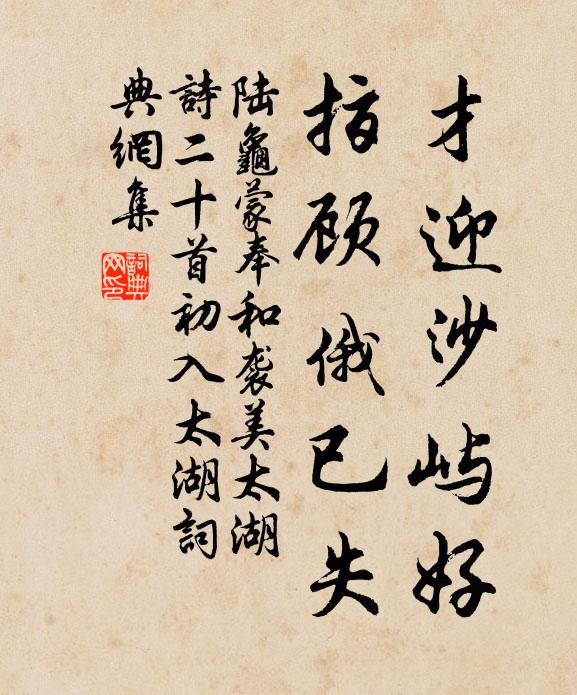 才迎沙屿好
指顾俄已失
陆龜蒙奉和袭美太湖
詩二十首初入太湖詞
典網集
詞典網印